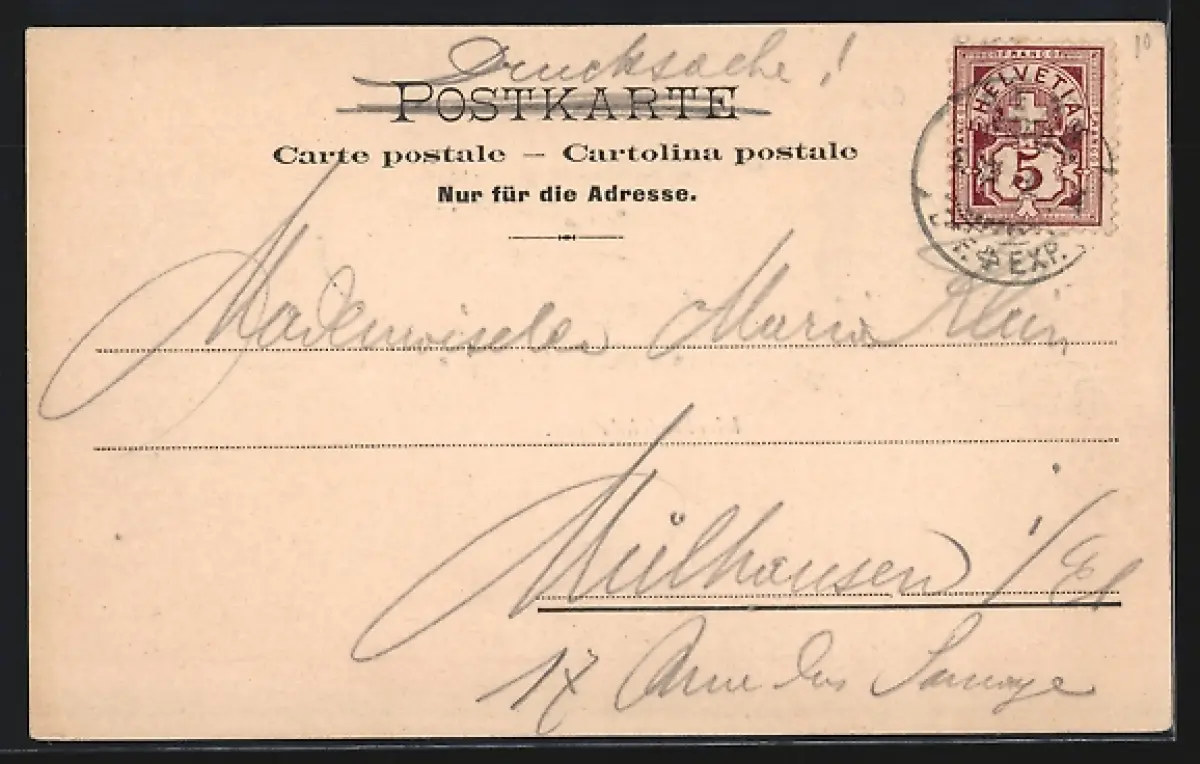 Drucksache!
POSTKARTE
Carte postale – Cartolina postale
Nur für die Adresse.
FRANCO
HELVETIA
FRANCO
FRANCO
5
F. EXP.
10
Mademoiselle Maria Klein
Mülhausen i/Els
17